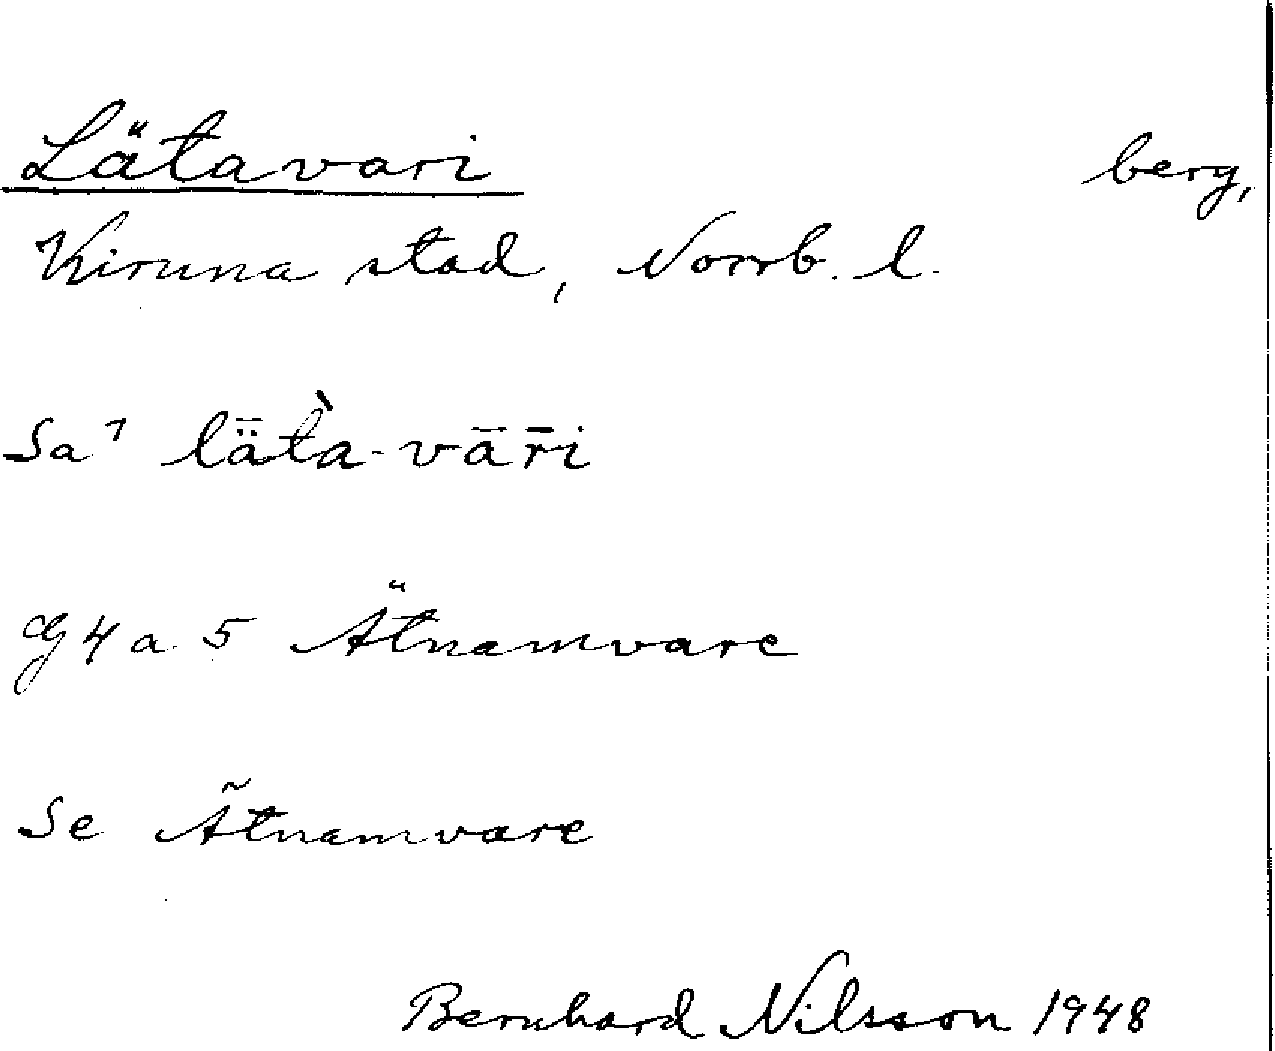 Lätavari berg,
Kiruna stad, Norrb. l.
Sa⁷ lǟtà-vār̄i
G 4 a 5 Ätnamvare
Se Ätnamvare
Bernhard Nilsson 1948